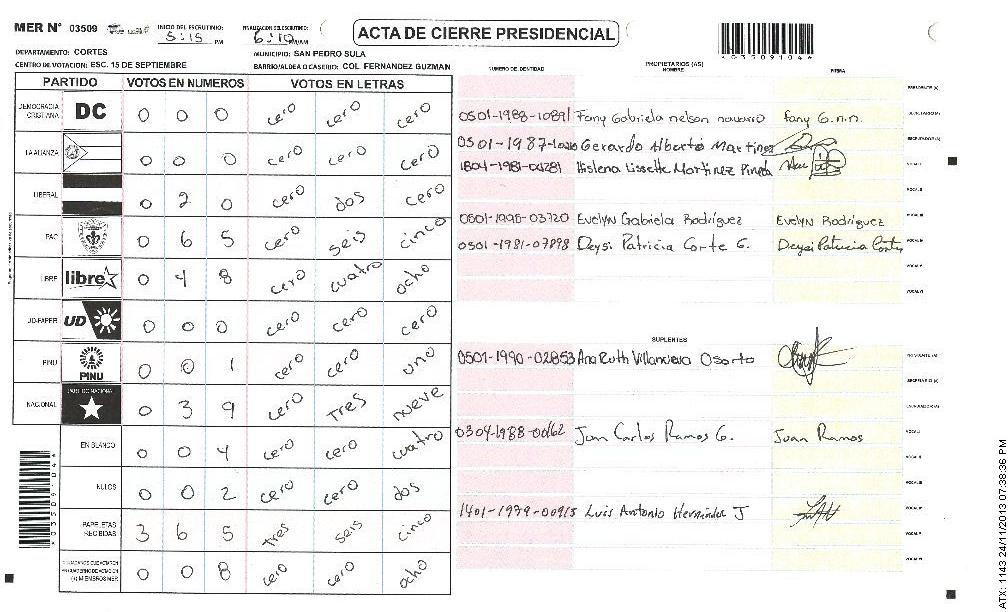 MER N° 03509 INICIO DEL ESCRUTINIO: 5:15 PM FINALIZACION DEL ESCRUTINIO: 6:10 PM/AM ACTA DE CIERRE PRESIDENCIAL
DEPARTAMENTO: CORTES MUNICIPIO: SAN PEDRO SULA
CENTRO DE VOTACION: ESC. 15 DE SEPTIEMBRE BARRIO/ALDEA O CASERIO: COL. FERNANDEZ GUZMAN
PARTIDO VOTOS EN NUMEROS VOTOS EN LETRAS
DEMOCRACIA CRISTIANA DC 0 0 0 cero cero cero
LA ALIANZA 0 0 0 cero cero cero
LIBERAL 0 2 0 cero dos cero
PAC 0 6 5 cero seis cinco
LIBRE libre 0 4 8 cero cuatro ocho
UD-FAPER UD 0 0 0 cero cero cero
PINU PINU 0 0 1 cero cero uno
NACIONAL PARTIDO NACIONAL 0 3 9 cero tres nueve
EN BLANCO 0 0 4 cero cero cuatro
NULOS 0 0 2 cero cero dos
PAPELETAS RECIBIDAS 3 6 5 tres seis cinco
0 0 8 cero cero ocho
NUMERO DE IDENTIDAD PROPIETARIOS (AS) NOMBRE FIRMA
0501-1988-10891 Fany Gabriela nelson navarro fany G.n.n.
0501-1987- Gerardo Alberto Martinez
1804-1981-00281 Hislena Lissette Martinez Pineda
0501-1995-03720 Evelyn Gabriela Rodríguez Evelyn Rodríguez
0501-1981-07898 Deysi Patricia Corte G. Deysi Patricia Cortes
SUPLENTES
0501-1990-02853 Ana Ruth Villanueva Osorto
0304-1988-00162 Juan Carlos Ramos G. Juan Ramos
1401-1979-00915 Luis Antonio Hernández J
*03509104*
*03509104*
ATX: 1143 24/11/2013 07:38:36 PM